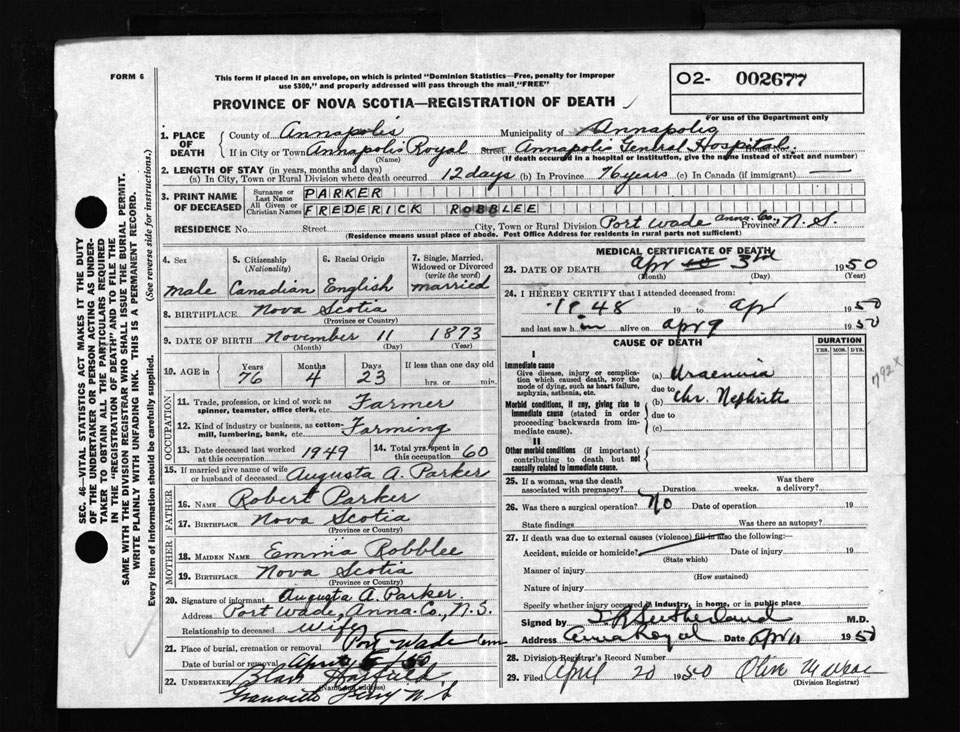 FORM 6
This form if placed in an envelope, on which is printed "Dominion Statistics—Free, penalty for improper
use $300," and properly addressed will pass through the mail "FREE"
O2- 002677
For use of the Department only
PROVINCE OF NOVA SCOTIA—REGISTRATION OF DEATH
1. PLACE OF DEATH
County of Annapolis Municipality of Annapolis
If in City or Town Annapolis Royal Street Annapolis General Hospital House No.
(Name) (If death occured in a hospital or institution, give the name instead of street and number)
2. LENGTH OF STAY (in years, months and days)
(a) In City, Town or Rural Division where death occurred 12 days (b) In Province 76 years (c) In Canada (if immigrant) —
3. PRINT NAME OF DECEASED
Surname or Last Name PARKER
All Given or Christian Names FREDERICK ROBBLEE
RESIDENCE No. Street City, Town or Rural Division Port Wade Anna. Co., Province N. S.
(Residence means usual place of abode. Post Office Address for residents in rural parts not sufficient)
4. Sex Male
5. Citizenship (Nationality) Canadian
6. Racial Origin English
7. Single, Married, Widowed or Divorced (write the word) Married
8. BIRTHPLACE Nova Scotia
(Province or Country)
9. DATE OF BIRTH November 11 1873
(Month) (Day) (Year)
10. AGE in Years 76 Months 4 Days 23 If less than one day old hrs. or min.
OCCUPATION
11. Trade, profession, or kind of work as spinner, teamster, office clerk, etc. Farmer
12. Kind of industry or business, as cotton-mill, lumbering, bank, etc. Farming
13. Date deceased last worked at this occupation 1949
14. Total yrs. spent in this occupation 60
15. If married give name of wife or husband of deceased Augusta A. Parker
FATHER
16. NAME Robert Parker
17. BIRTHPLACE Nova Scotia
(Province or Country)
MOTHER
18. MAIDEN NAME Emma Robblee
19. BIRTHPLACE Nova Scotia
(Province or Country)
20. Signature of informant Augusta A. Parker.
Address Port Wade, Anna. Co., N. S.
Relationship to deceased wife
21. Place of burial, cremation or removal Port Wade Cem
Date of burial or removal April 5 50
22. UNDERTAKER Blair Hatfield
(Name and address)
Granville Ferry N S
MEDICAL CERTIFICATE OF DEATH
23. DATE OF DEATH Apr 3rd 1950
(Month) (Day)
24. I HEREBY CERTIFY that I attended deceased from:
1948 19 to Apr 1950
and last saw him alive on Apr 9 1950
CAUSE OF DEATH
DURATION
YRS. MOS. DYS.
I
Immediate cause
Give disease, injury or complication which caused death, NOT the mode of dying, such as heart failure, asphyxia, asthenia, etc.
(a) Uraemia
due to
Morbid conditions, if any, giving rise to immediate cause (stated in order proceeding backwards from immediate cause).
(b) Chr. Nephritis
due to
(c)
II
Other morbid conditions (if important) contributing to death but not causally related to immediate cause.
792x
25. If a woman, was the death associated with pregnancy? Duration weeks. Was there a delivery?
26. Was there a surgical operation? No Date of operation 19
State findings Was there an autopsy?
27. If death was due to external causes (violence) fill in also the following:
Accident, suicide or homicide? Date of injury 19
(State which)
Manner of injury
(How sustained)
Nature of injury
Specify whether injury occured in industry, in home, or in public place
Signed by Sutherland M.D.
Address Anna Royal Date Apr 11 1950
28. Division Registrar's Record Number
29. Filed April 20 1950 Olive M
(Division Registrar)
SEC. 46—VITAL STATISTICS ACT MAKES IT THE DUTY
OF THE UNDERTAKER OR PERSON ACTING AS UNDER-
TAKER TO OBTAIN ALL THE PARTICULARS REQUIRED
IN THE "REGISTRATION OF DEATH" AND TO FILE THE
SAME WITH THE DIVISION REGISTRAR WHO SHALL ISSUE THE BURIAL PERMIT.
WRITE PLAINLY WITH UNFADING INK. THIS IS A PERMANENT RECORD.
Every item of information should be carefully supplied. (See reverse side for instructions.)